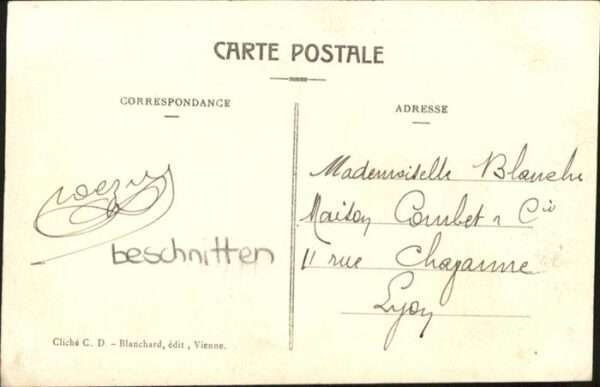 CARTE POSTALE
CORRESPONDANCE
ADRESSE
Mademoiselle Blanche
Maison Combet & Cie
11 rue Chazanne
Lyon
beschnitten
Cliché C. D. - Blanchard, édit, Vienne.